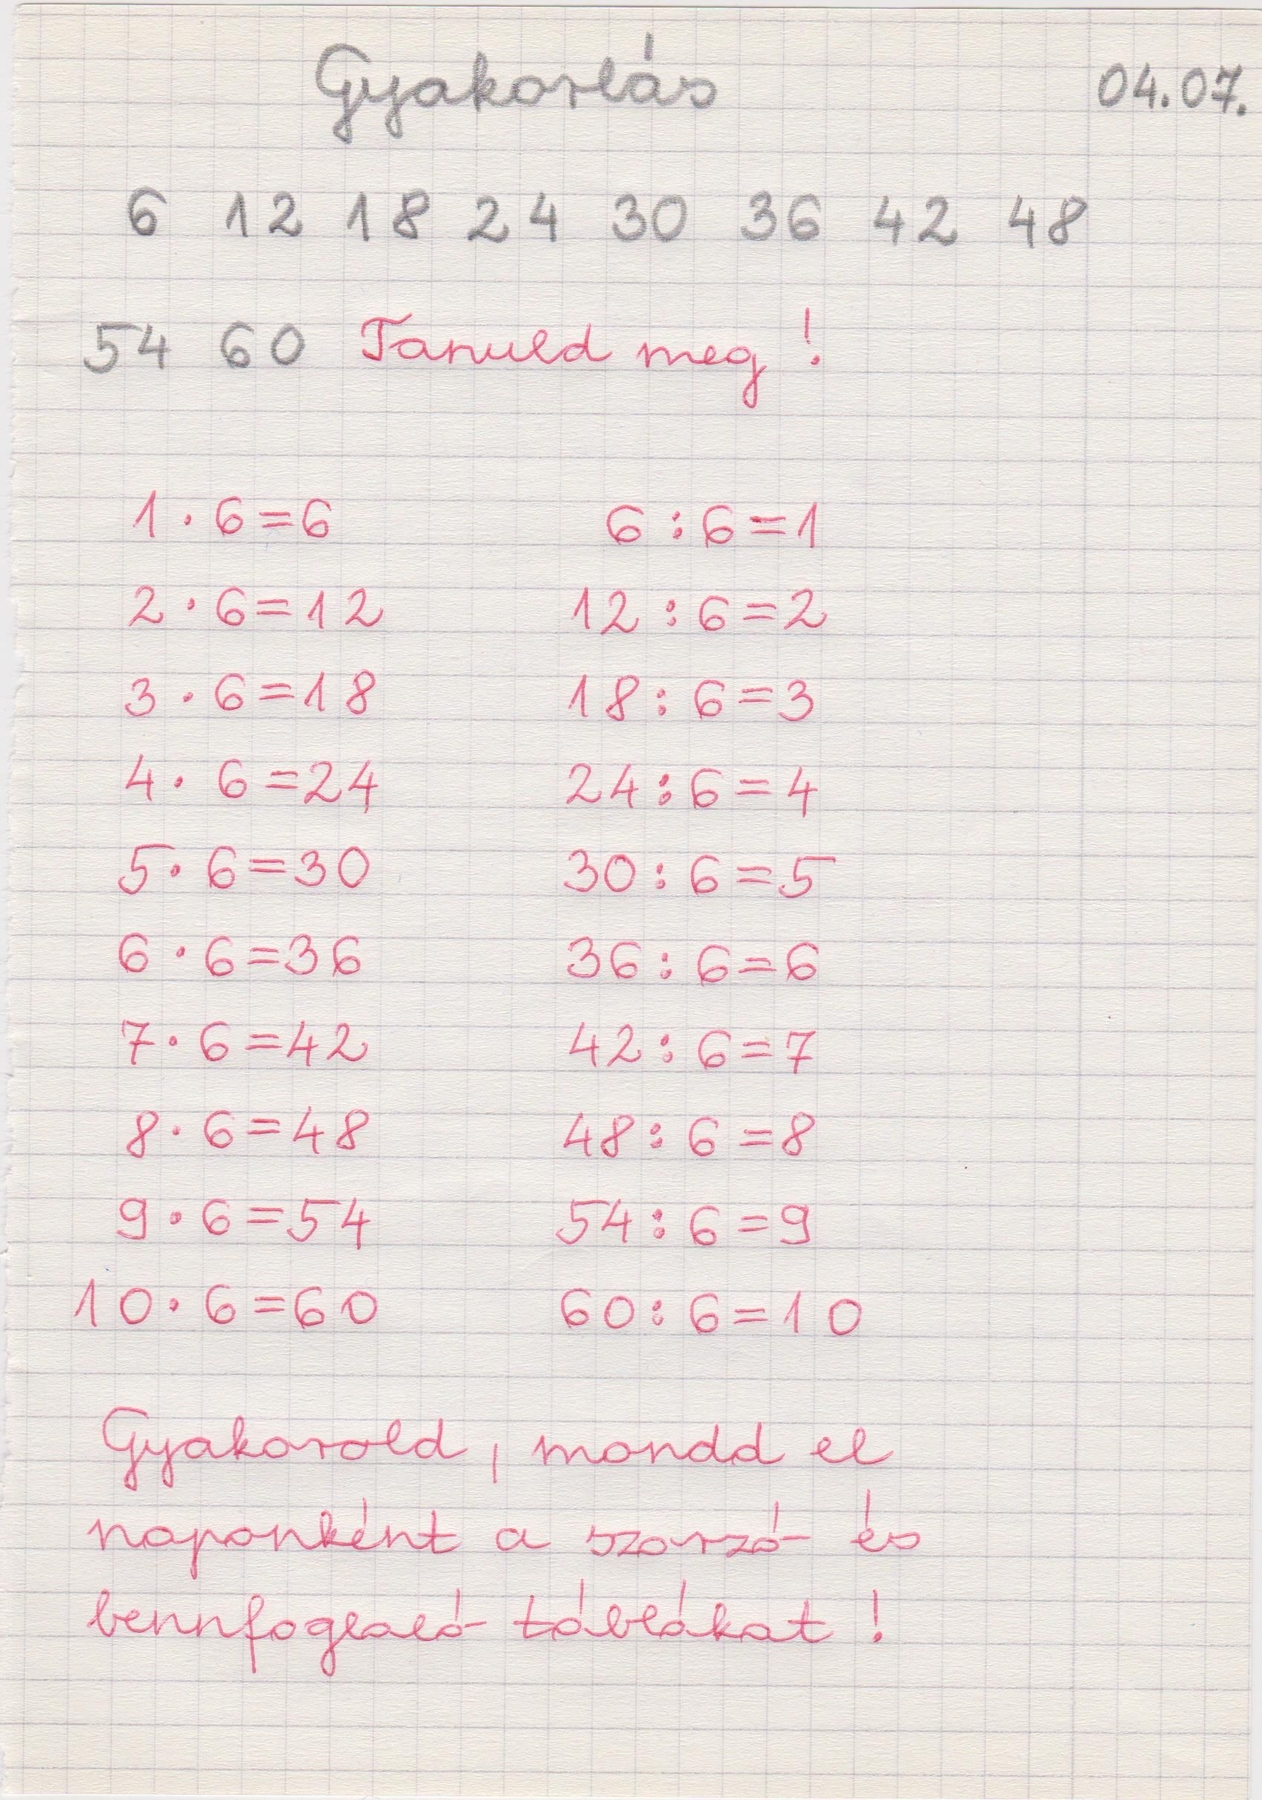 Gyakorlás 04.07.
6 12 18 24 30 36 42 48
54 60 Tanuld meg!
1 · 6=6 6 : 6=1
2 · 6=12 12 : 6=2
3 · 6=18 18 : 6=3
4 · 6=24 24 : 6=4
5 · 6=30 30 : 6=5
6 · 6=36 36 : 6=6
7 · 6=42 42 : 6=7
8 · 6=48 48 : 6=8
9 · 6=54 54 : 6=9
10 · 6=60 60 : 6=10
Gyakorold, mondd el
naponként a szorzó- és
bennfogлaló- táblákat!